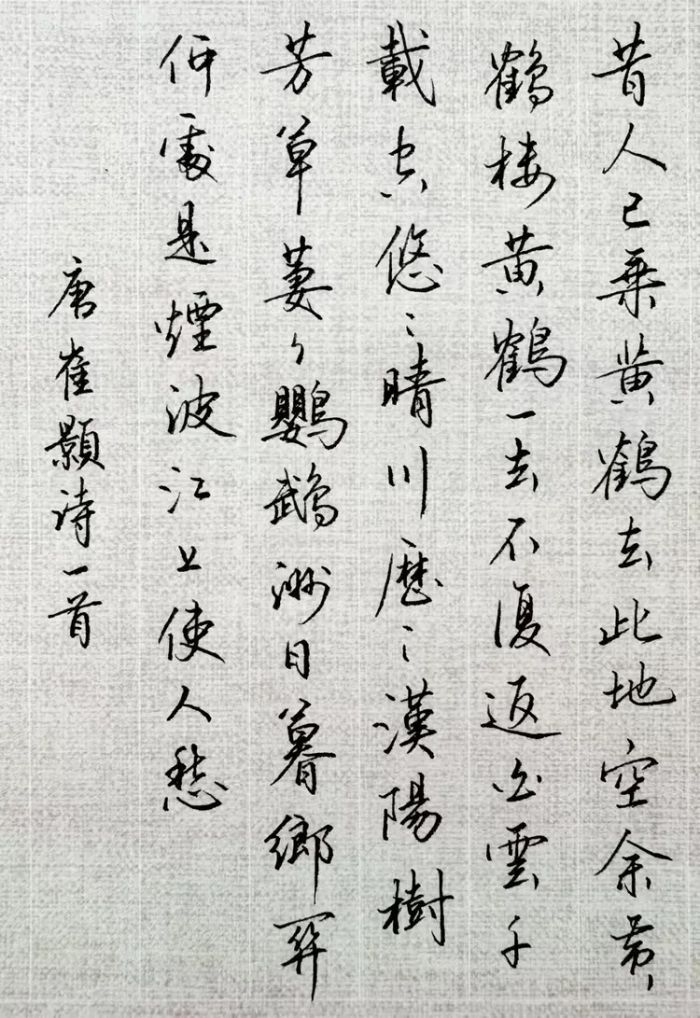 昔人已乗黄鶴去此地空余黄
鶴楼黄鶴一去不復返白雲千
載空悠〻晴川歴〻漢陽樹
芳草萋〻鸚鵡洲日暮鄉関
何處是煙波江上使人愁
唐崔顥诗一首